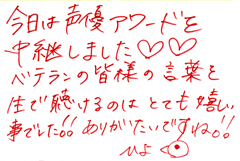 今日は声優アワードを
中継しました♡♡
ベテランの皆様の言葉を
生で聴けるのはとても嬉しい
事でした!! ありがたいですね!!
ひよ